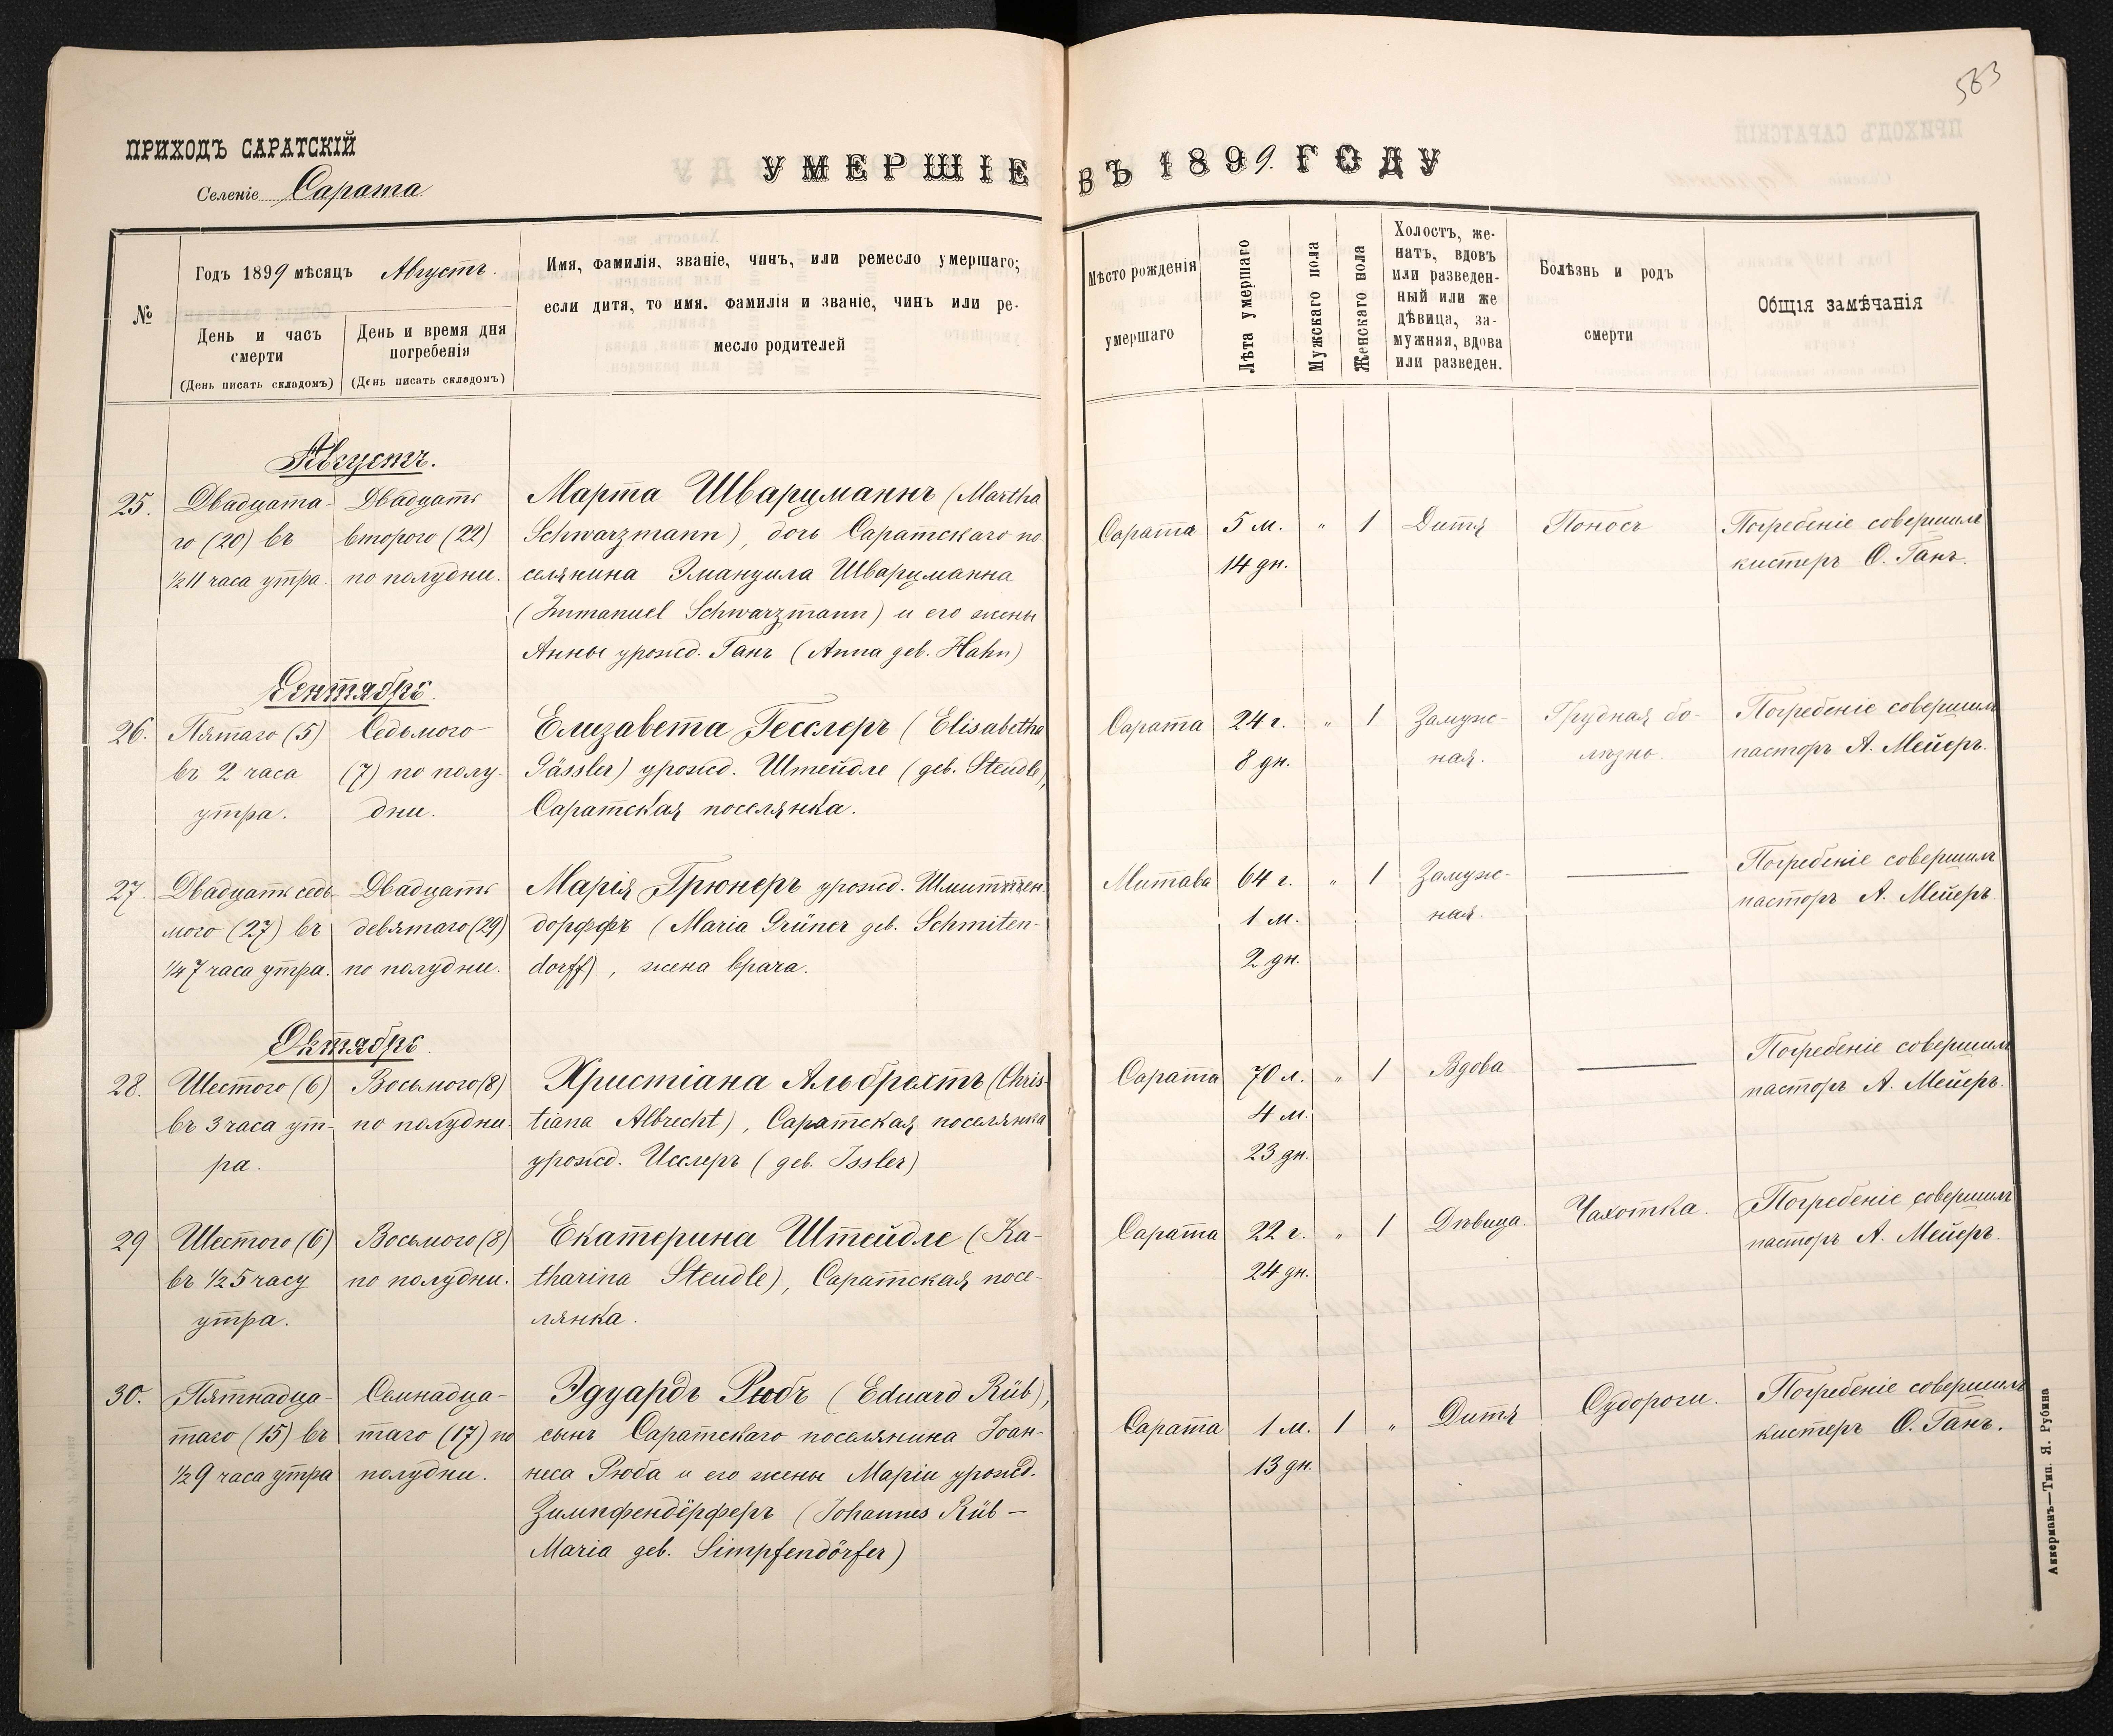 563
ПРИХОДЪ САРАТСКІЙ
Селеніе Сарата
УМЕРШІЕ ВЪ 1899. ГОДУ
№
Годъ 1899 мѣсяцъ Августъ.
День и часъ
смерти
(День писать складомъ)
День и время дня
погребенія
(День писать складомъ)
Имя, фамилія, званіе, чинъ, или ремесло умершаго;
если дитя, то имя. фамилія и званіе, чинъ или ре-
месло родителей
Мѣсто рожденія
умершаго
Лѣта умершаго
Мужскаго пола
Женскаго пола
Холостъ, же-
натъ, вдовъ
или разведен-
ный или же
дѣвица, за-
мужняя, вдова
или разведен.
Болѣзнь и родъ
смерти
Общія замѣчанія
Августъ.
25.
Двадцата-
го (20) въ
½ 11 часа утра.
Двадцать
второго (22)
по полудни.
Марта Шварцманнъ (Martha
Schwarzmann), дочь Саратскаго по
селянина Эмануила Шварцманна
(Immanuel Schwarzmann) и его жены
Анны урожд. Ганъ (Anna geb. Hahn)
Сарата
5 м.
14 дн.
„
1
Дитя
Поносъ
Погребеніе совершилъ
кистеръ О. Ганъ.
Сентябрь.
26.
Пятаго (5)
въ 2 часа
утра.
Седьмого
(7) по полу-
дни.
Елизавета Гесслеръ (Elisabetha
Gässler) урожд. Штейдле (geb. Steudle),
Саратская поселянка.
Сарата
24 г.
8 дн.
„
1
Замуж-
ная.
Грудная бо-
лѣзнь.
Погребеніе совершилъ
пасторъ А. Мейеръ.
27.
Двадцать седь-
мого (27) въ
¼ 7 часа утра.
Двадцать
девятаго (29)
по полудни.
Марія Грюнеръ урожд. Шмиттен-
дорффъ (Maria Grüner geb. Schmiten-
dorff), жена врача.
Митава
64 г.
1 м.
2 дн.
„
1
Замуж-
ная.
—
Погребеніе совершилъ
пасторъ А. Мейеръ.
Октябрь.
28.
Шестого (6)
въ 3 часа ут-
ра.
Восьмого (8)
по полудни.
Христіана Альбрехтъ (Chris-
tiana Albrecht), Саратская поселянка
урожд. Исслеръ (geb. Issler)
Сарата
70 л.
4 м.
23 дн.
„
1
Вдова
—
Погребеніе совершилъ
пасторъ А. Мейеръ.
29
Шестого (6)
въ ½ 5 часу
утра.
Восьмого (8)
по полудни.
Екатерина Штейдле (Ka-
tharina Steudle), Саратская посе-
лянка.
Сарата
22 г.
24 дн.
„
1
Дѣвица.
Чахотка.
Погребеніе совершилъ
пасторъ А. Мейеръ.
30.
Пятнадца-
таго (15) въ
½ 9 часа утра
Семнадца-
таго (17) по
полудни.
Эдуардъ Рюбъ (Eduard Rüb),
сынъ Саратскаго поселянина Іоан-
неса Рюба и его жены Маріи урожд.
Зимпфендёрферъ (Johannes Rüb —
Maria geb. Simpfendörfer)
Сарата
1 м.
13 дн.
1
„
Дитя
Судороги.
Погребеніе совершилъ
кистеръ О. Ганъ.
Аккерманъ—Тип. Я. Рубина